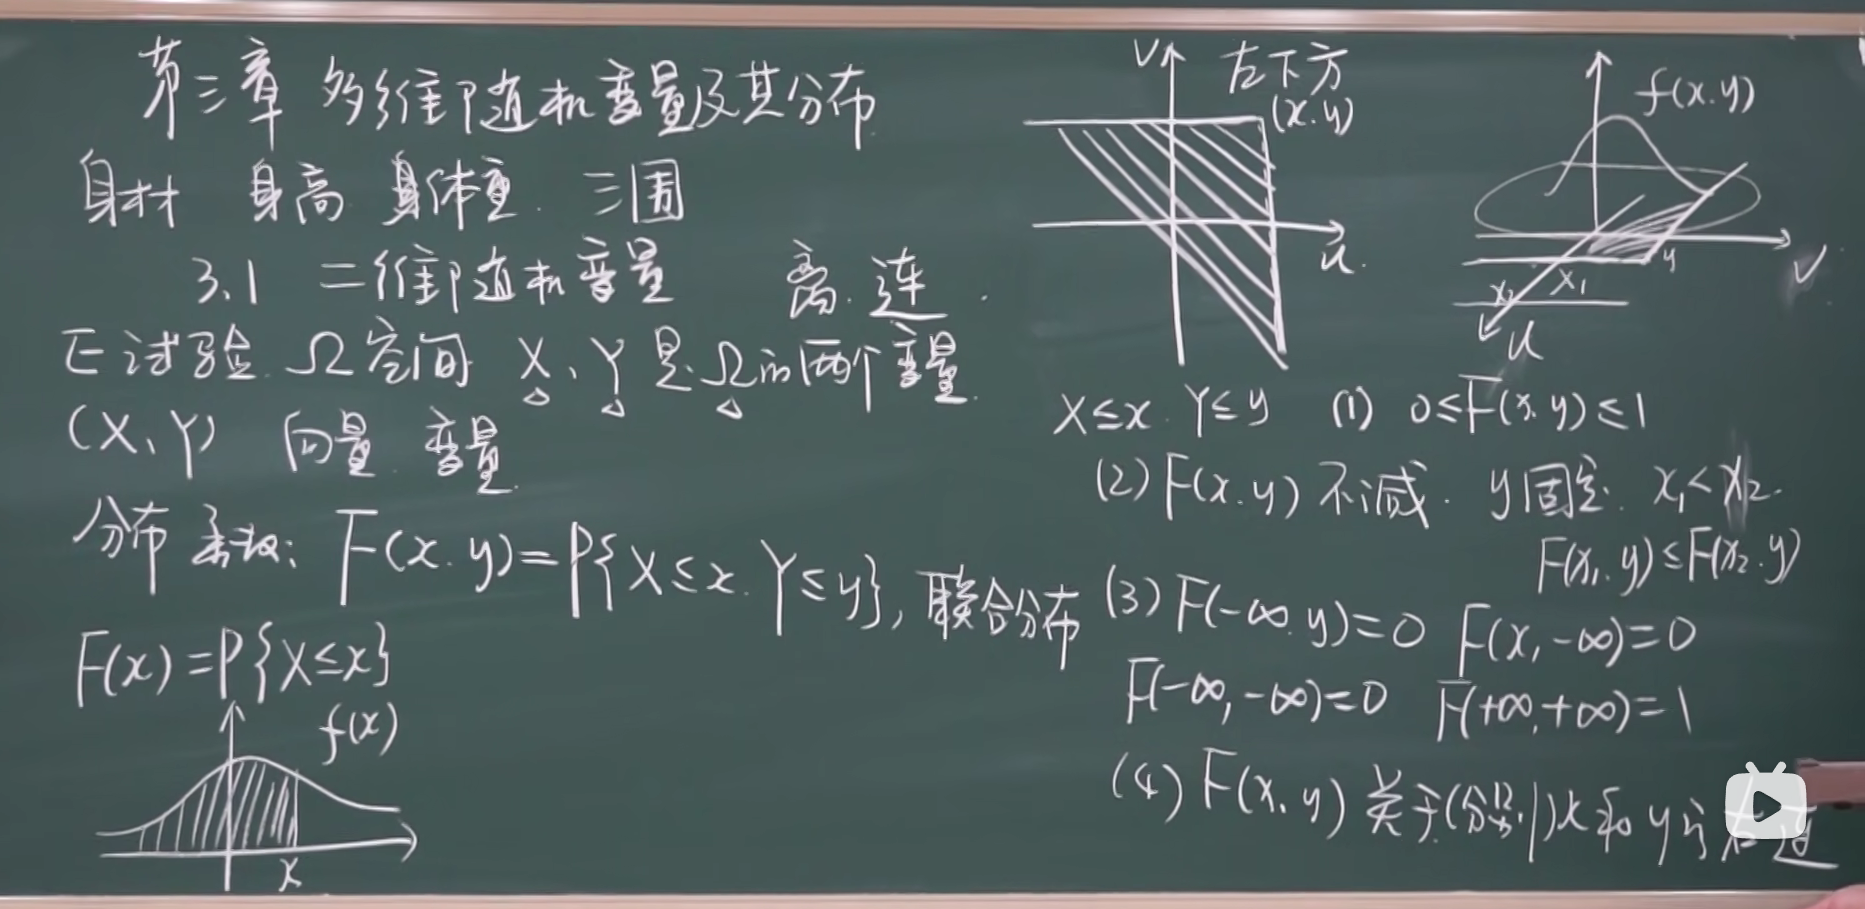 第三章 多维随机变量及其分布
身材 身高 身体重 三围
3.1 二维随机变量 离.连
E试验 Ω空间 X、Y是Ω的两个变量
(X、Y) 向量 变量
分布函数: F(x.y)=P{X≤x. Y≤y}, 联合分布
F(x)=P{X≤x}
f(x)
x
V
左下方
(x.y)
u
f(x.y)
V
y
x₁
x₂
u
X≤x. Y≤y (1) 0≤F(x.y)≤1
(2) F(x.y) 不减. y固定. x₁<x₂.
F(x₁.y)≤F(x₂.y)
(3) F(-∞.y)=0 F(x,-∞)=0
F(-∞,-∞)=0 F(+∞,+∞)=1
(4) F(x.y) 关于(分别)x和y